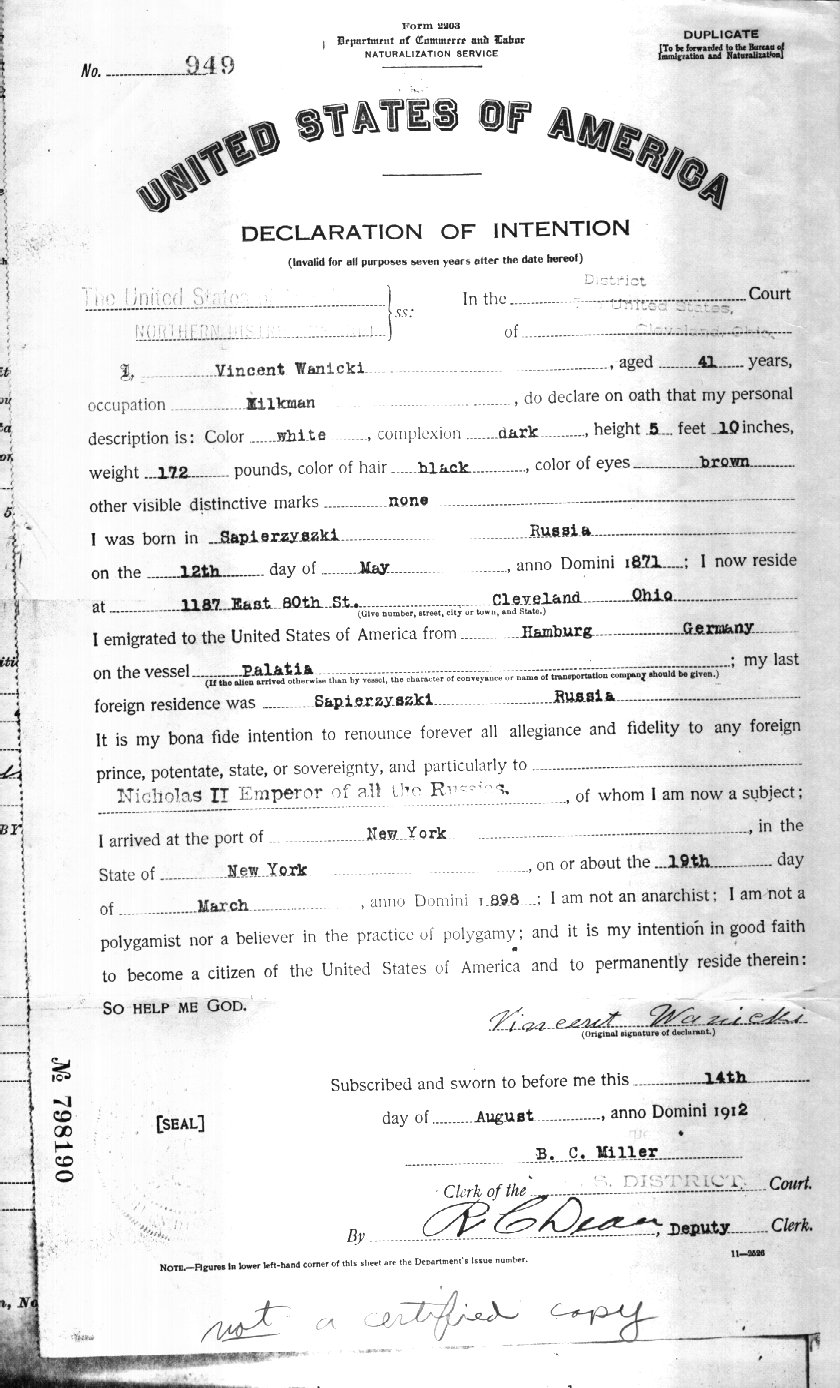 Form 2203
Department of Commerce and Labor
NATURALIZATION SERVICE
DUPLICATE
[To be forwarded to the Bureau of
Immigration and Naturalization]
No. 949
UNITED STATES OF AMERICA
DECLARATION OF INTENTION
(Invalid for all purposes seven years after the date hereof)
The United States
NORTHERN
ss:
District
In the United States, Court
of Cleveland, Ohio,
I, Vincent Wanicki, aged 41 years,
occupation Milkman, do declare on oath that my personal
description is: Color white, complexion dark, height 5 feet 10 inches,
weight 172 pounds, color of hair black, color of eyes brown
other visible distinctive marks none
I was born in Sapierzyszki Russia
on the 12th day of May, anno Domini 1871; I now reside
at 1187 East 80th St. Cleveland Ohio
(Give number, street, city or town, and State.)
I emigrated to the United States of America from Hamburg Germany
on the vessel Palatia; my last
(If the alien arrived otherwise than by vessel, the character of conveyance or name of transportation company should be given.)
foreign residence was Sapierzyszki Russia
It is my bona fide intention to renounce forever all allegiance and fidelity to any foreign
prince, potentate, state, or sovereignty, and particularly to
Nicholas II Emperor of all the Russias, of whom I am now a subject;
I arrived at the port of New York, in the
State of New York, on or about the 19th day
of March, anno Domini 1898; I am not an anarchist; I am not a
polygamist nor a believer in the practice of polygamy; and it is my intention in good faith
to become a citizen of the United States of America and to permanently reside therein:
SO HELP ME GOD.
Vincent Wanicki
(Original signature of declarant.)
Subscribed and sworn to before me this 14th
[SEAL]
day of August, anno Domini 1912
B. C. Miller
Clerk of the S. DISTRICT Court.
By R C Dean, Deputy Clerk.
11—2526
No 798190
NOTE.—Figures in lower left-hand corner of this sheet are the Department's issue number.
not a certified copy